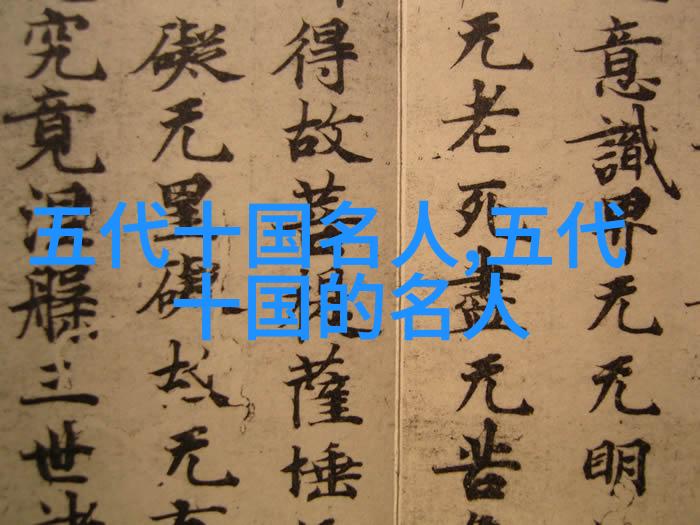 五代十国名人,五代
十国的名人
意識界无无明
无老死盡无苦
得故菩提薩埵
礙无罣礙故无
究竟涅槃三世諸